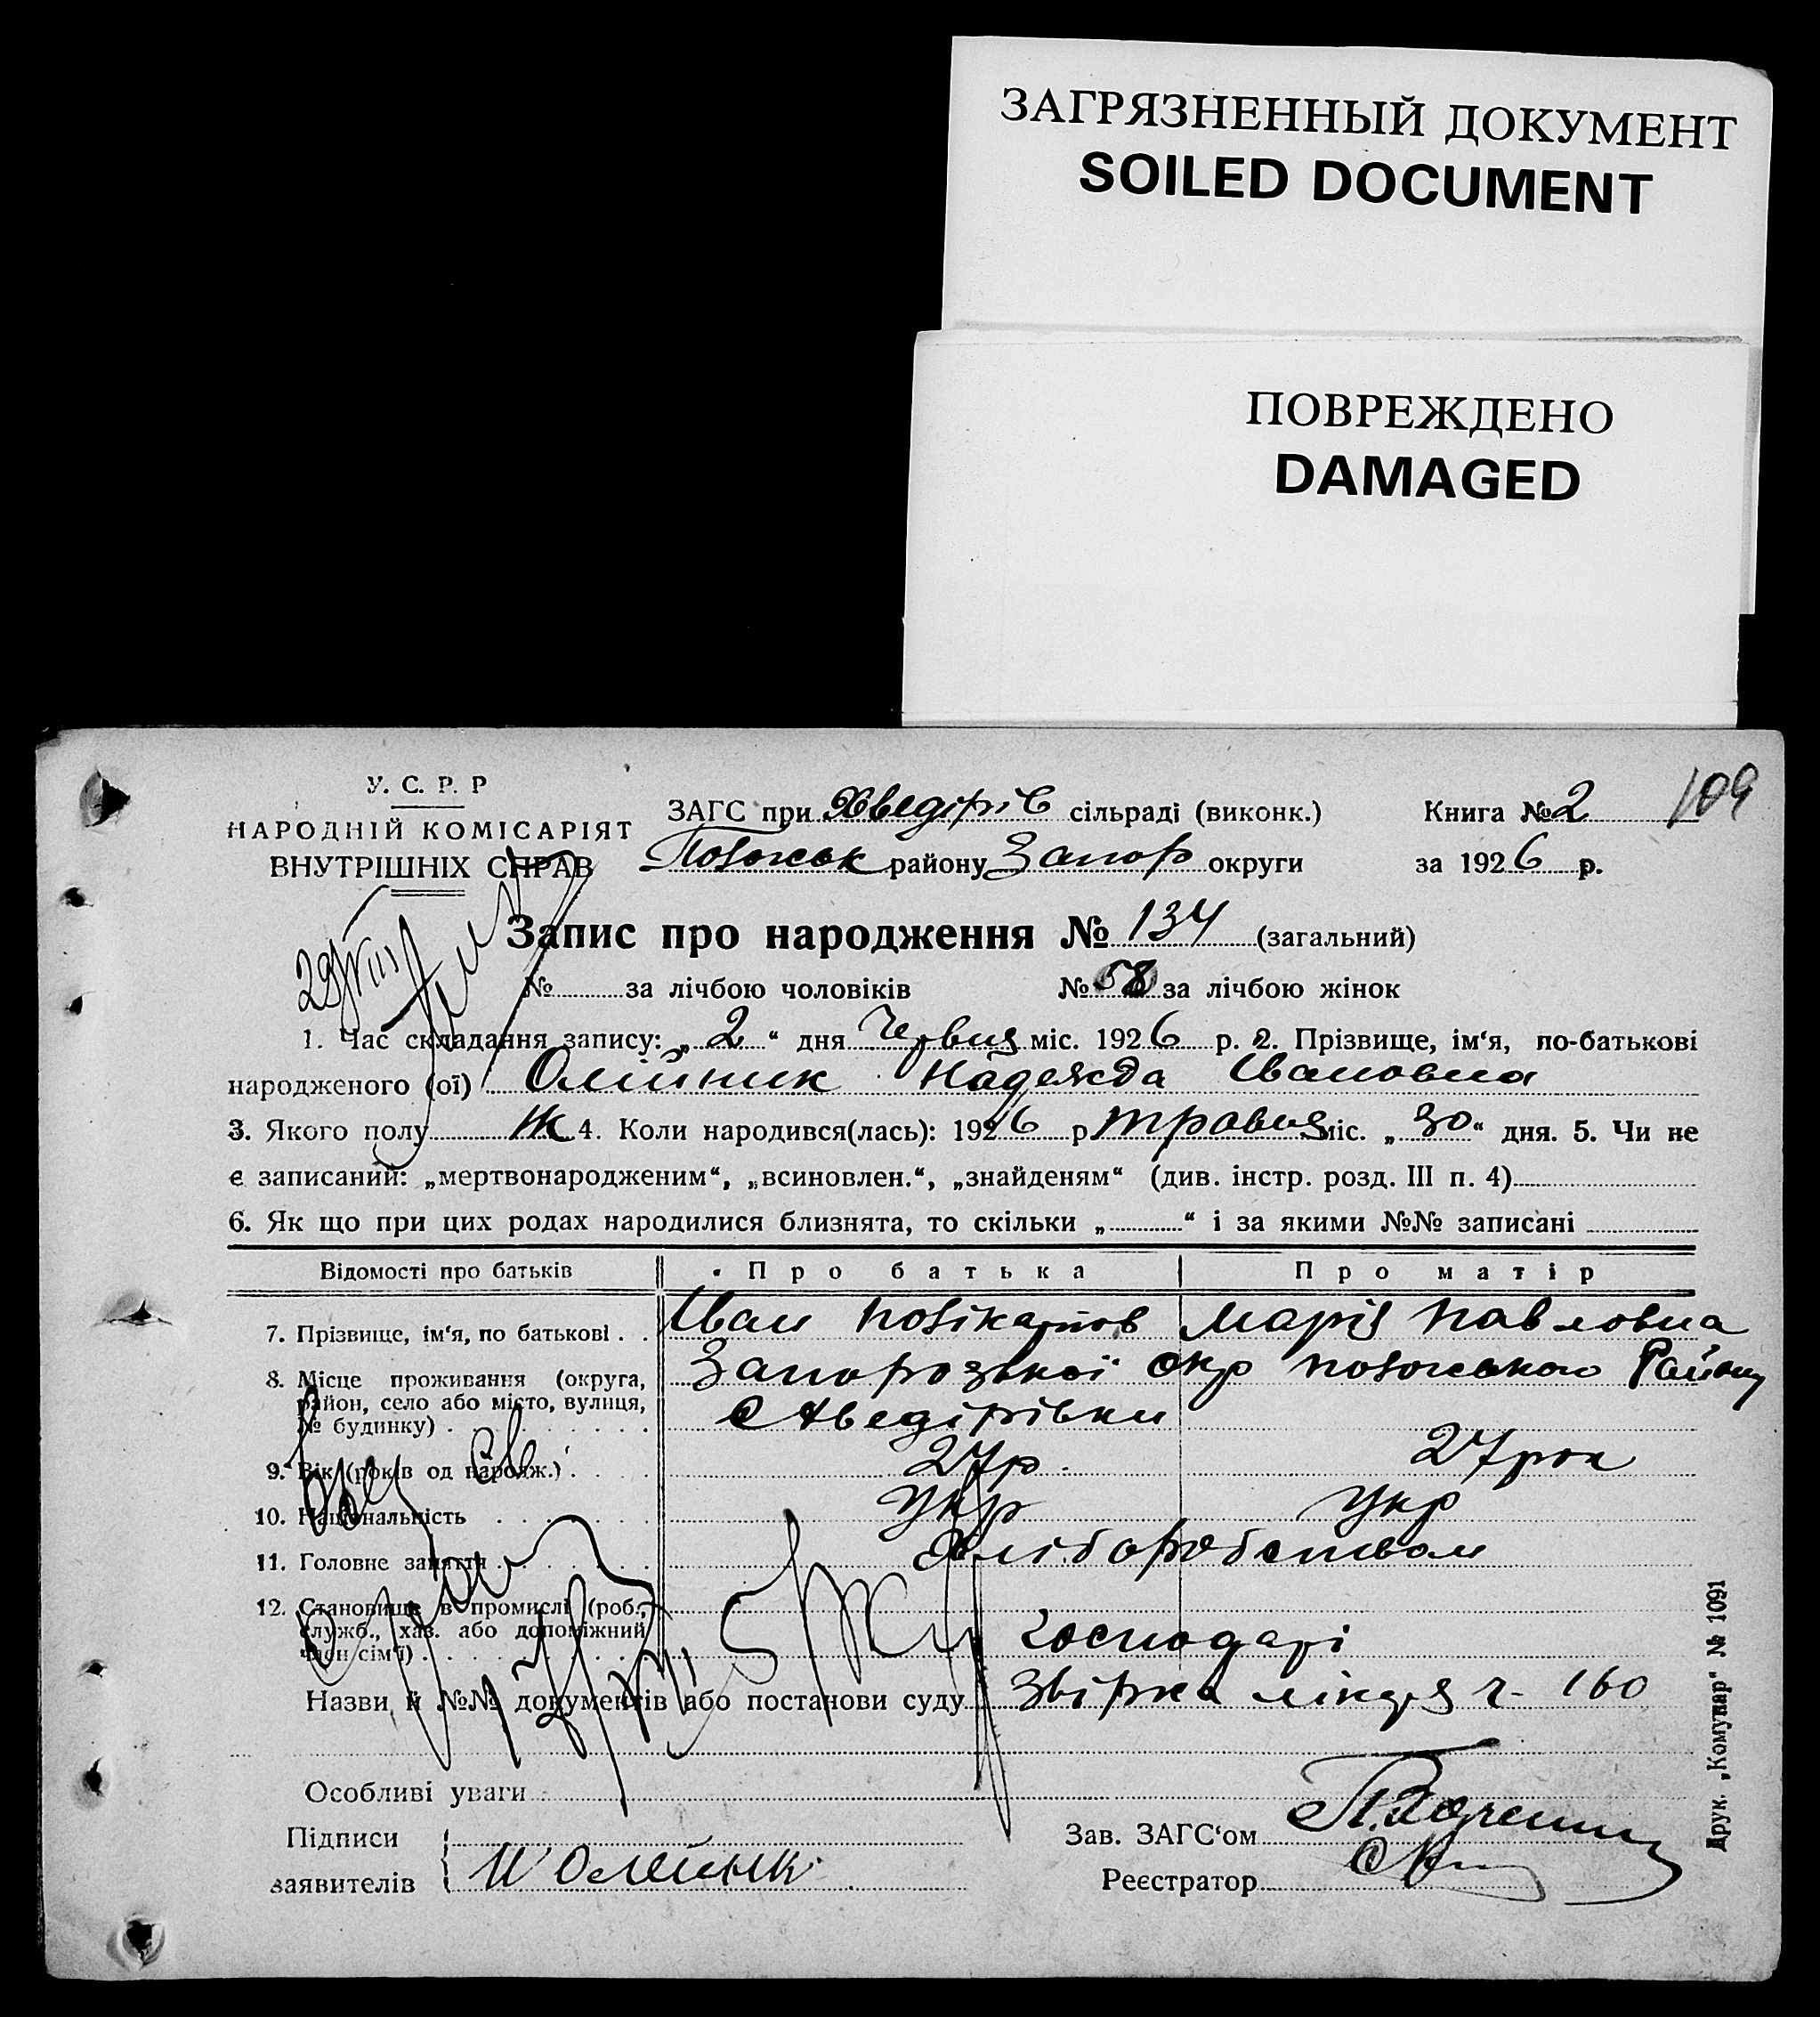 ЗАГРЯЗНЕННЫЙ ДОКУМЕНТ
SOILED DOCUMENT
ПОВРЕЖДЕНО
DAMAGED
109
У. С. Р. Р
НАРОДНІЙ КОМІСАРІЯТ
ВНУТРІШНІХ СПРАВ
ЗАГС при Хведірів сільраді (виконк.) Книга № 2
району Запор округи за 1926 р.
Запис про народження № 134 (загальний)
№ за лічбою чоловіків № 58 за лічбою жінок
1. Час складання запису: „2“ дня Червня міс. 1926 р. 2. Прізвище, ім‘я, по-батькові
народженого (ої) Олійник Надежда Івановна
3. Якого полу Ж 4. Коли народився(лась): 1926 р травня міс. „30“ дня. 5. Чи не
є записаний: „мертвонародженим“, „всиновлен.“, „знайденям“ (див. інстр. розд. III п. 4)
6. Як що при цих родах народилися близнята, то скільки „ “ і за якими №№ записані
Відомості про батьків Про батька Про матір
7. Прізвище, ім‘я, по батькові . . Іван Марія Павловна
8. Місце проживання (округа, район, село або місто, вулиця, № будинку) Запорозької окр Району
9. Вік (років од народж.) 27р. 27рок
10. Національність Укр Укр
11. Головне заняття Хліборобством
12. Становище в промислі (роб., служб., хаз. або допоміжний член сім‘ї) Господарі
Назви й №№ документів або постанови суду ч- 160
Особливі уваги
Підписи
заявителів И Олейник
Зав. ЗАГС‘ом
Реєстратор
Друк. „Комунар“ № 1091